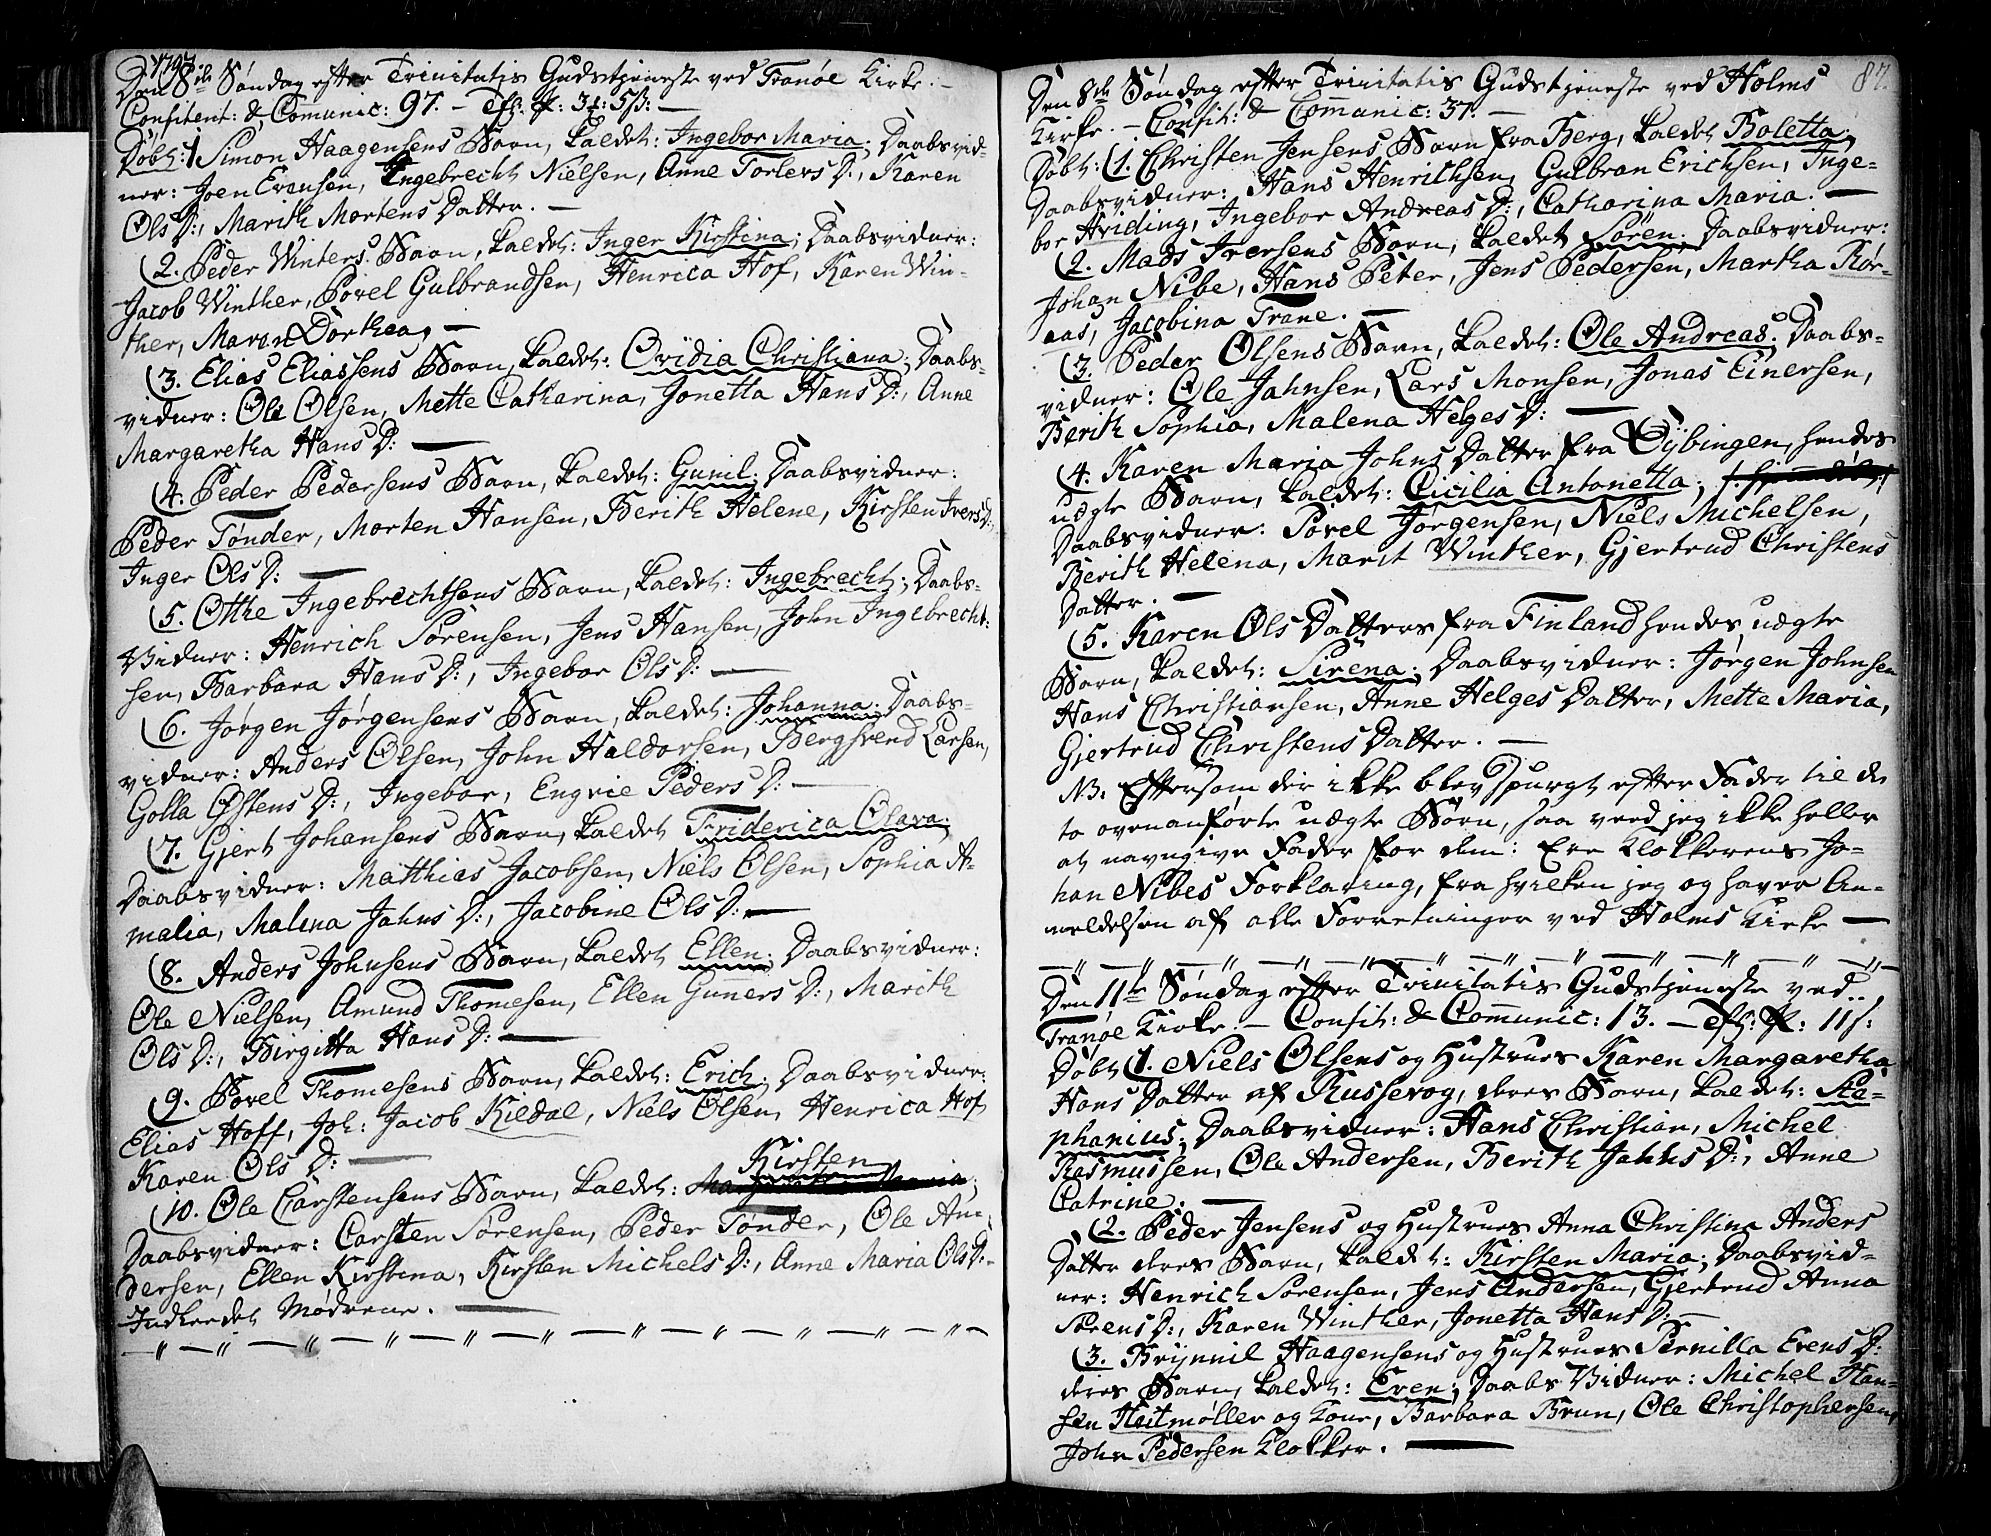 1797.
Den 8de Søndag efter Trinitatis Gudstjeneste ved Tranøe Kirke. –
Confitent: & Comunic: 97. –
Døbt: 1 Simon Haagensens Barn, kaldet: Ingebor Maria; Daabsvid-
ner: Joen Evensen, Ingebrecht Nielsen, Anne Torlevs D:, Karen
Ols D:, Marith Mortens Datter. –
(2. Peder Winters Barn, kaldet: Inger Kirstina; Daabsvidner:
Jacob Winther, Povel Gulbrandsen, Henrica Hof, Karen Win-
ther, Maren Dorthea, –
(3. Elias Eliassens Barn, kaldet: Ovidia Christiana; Daabs-
vidner: Ole Olsen, Mette Catharina, Jonetta Hans D:, Anne
Margaretha Hans D: –
(4. Peder Pedersens Barn, kaldet: Gunil; Daabsvidner:
Peder Tønder, Morten Hansen, Berith Helene, Kirsten Ivers D:,
Inger Ols D: –
(5. Othe Ingebrechtsens Barn, kaldet: Ingebrecht; Daabs-
Vidner: Henrich Sørensen, Jens Hansen, John Ingebrecht-
sen, Barbara Hans D:, Ingebor Ols D: –
(6. Jørgen Jørgensens Barn, kaldet: Johanna; Daabs-
vidner: Anders Olsen, John Haldorsen, Bergsvend Larsen,
Golla Østens D:, Ingebor, Engvie Peders D: –
(7. Gjert Johansens Barn, kaldet Friderica Olava;
Daabsvidner: Matthias Jacobsen, Niels Olsen, Sophia A-
malia, Malena Jahns D:, Jacobine Ols D: –
(8. Anders Johnsens Barn, kaldet Ellen; Daabsvidner:
Ole Nielsen, Amund Thomesen, Ellen Gunners D:, Marith
Ols D:, Birgitta Hans D: –
(9. Povel Thomesens Barn, kaldet: Erich; Daabsvidner:
Elias Hoff, Joh: Jacob Kildal, Niels Olsen, Henrica Hof,
Karen Ols D: –
Kirsten
(10. Ole Carstensens Barn, kaldet: Margaretha Maria;
Daabsvidner: Carsten Sørensen, Peder Tønder, Ole An-
dersen, Ellen Kirstina, Kirsten Michels D:, Anne Maria Ols D: –
Indledet Mødrene. –
87.
Den 8de Søndag efter Trinitatis Gudstjeneste ved Holms
Kirke. – Confit: & Comunic: 37. –
Døbt: (1. Christen Jensens Barn fra Berg, kaldet Boletta;
Daabsvidner: Hans Henrichsen, Gulbran Erichsen, Inge-
bor Hviding, Ingebor Andreas D:, Catharina Maria. –
(2. Mads Iversens Barn, kaldet Søren. Daabsvidner:
Johan Nibe, Hans Peter, Jens Pedersen, Martha Kør-
aas, Jacobina Trane. –
(3. Peder Olsens Barn, kaldet: Ole Andreas. Daabs-
vidner: Ole Jahnsen, Lars Monsen, Jonas Einersen,
Berith Sophia, Malena Helges D: –
(4. Karen Maria Johns Datter fra Dybingen, hendes
uægte Barn, kaldet: Cicilia Antonetta;
Daabsvidner: Povel Jørgensen, Niels Michelsen,
Berith Helena, Marit Winther, Gjertrud Christens
Datter. –
(5. Karen Ols Datters fra Finland hendes uægte
Barn, kaldet: Sirena; Daabsvidner: Jørgen Johnsen
Hans Christiansen, Anne Helges Datter, Mette Maria,
Gjertrud Christens Datter. –
NB. Eftersom der ikke blev spurgt efter Fader til de
to ovenanførte uægte Børn, saa veed jeg ikke heller
at navngive Fader for dem: Ere Klokkerens Jo-
han Nibes Forklaring, fra hvilken jeg og haver An-
meldelsen af alle Forretninger ved Holms Kirke –
Den 11te Søndag efter Trinitatis Gudstjeneste ved
Tranøe Kirke. – Confit: & Comunic: 13. –
Døbt (1. Niels Olsens og Hustrues Karen Margaretha
Hans Datter af Russevog, deres Barn, kaldet: Ra-
phanius; Daabsvidner: Hans Christian, Michel
Rasmussen, Ole Andersen, Berith Jahns D:, Anne
Catrine. –
(2. Peder Jensens og Hustrues Anna Christina Anders
Datter deres Barn, kaldet: Kirsten Maria; Daabsvid-
ner: Henrich Sørensen, Jens Andersen, Gjertrud Anna
Sørens D:, Karen Winther, Jonetta Hans D: –
(3. Brynnil Haagensens og Hustrues Pernilla Evens D:
deres Barn, kaldet: Even; Daabs Vidner: Michel Han-
sen Heitmøller og Kone, Barbara Brun, Ole Christophersen,
John Pedersen Klokker. –